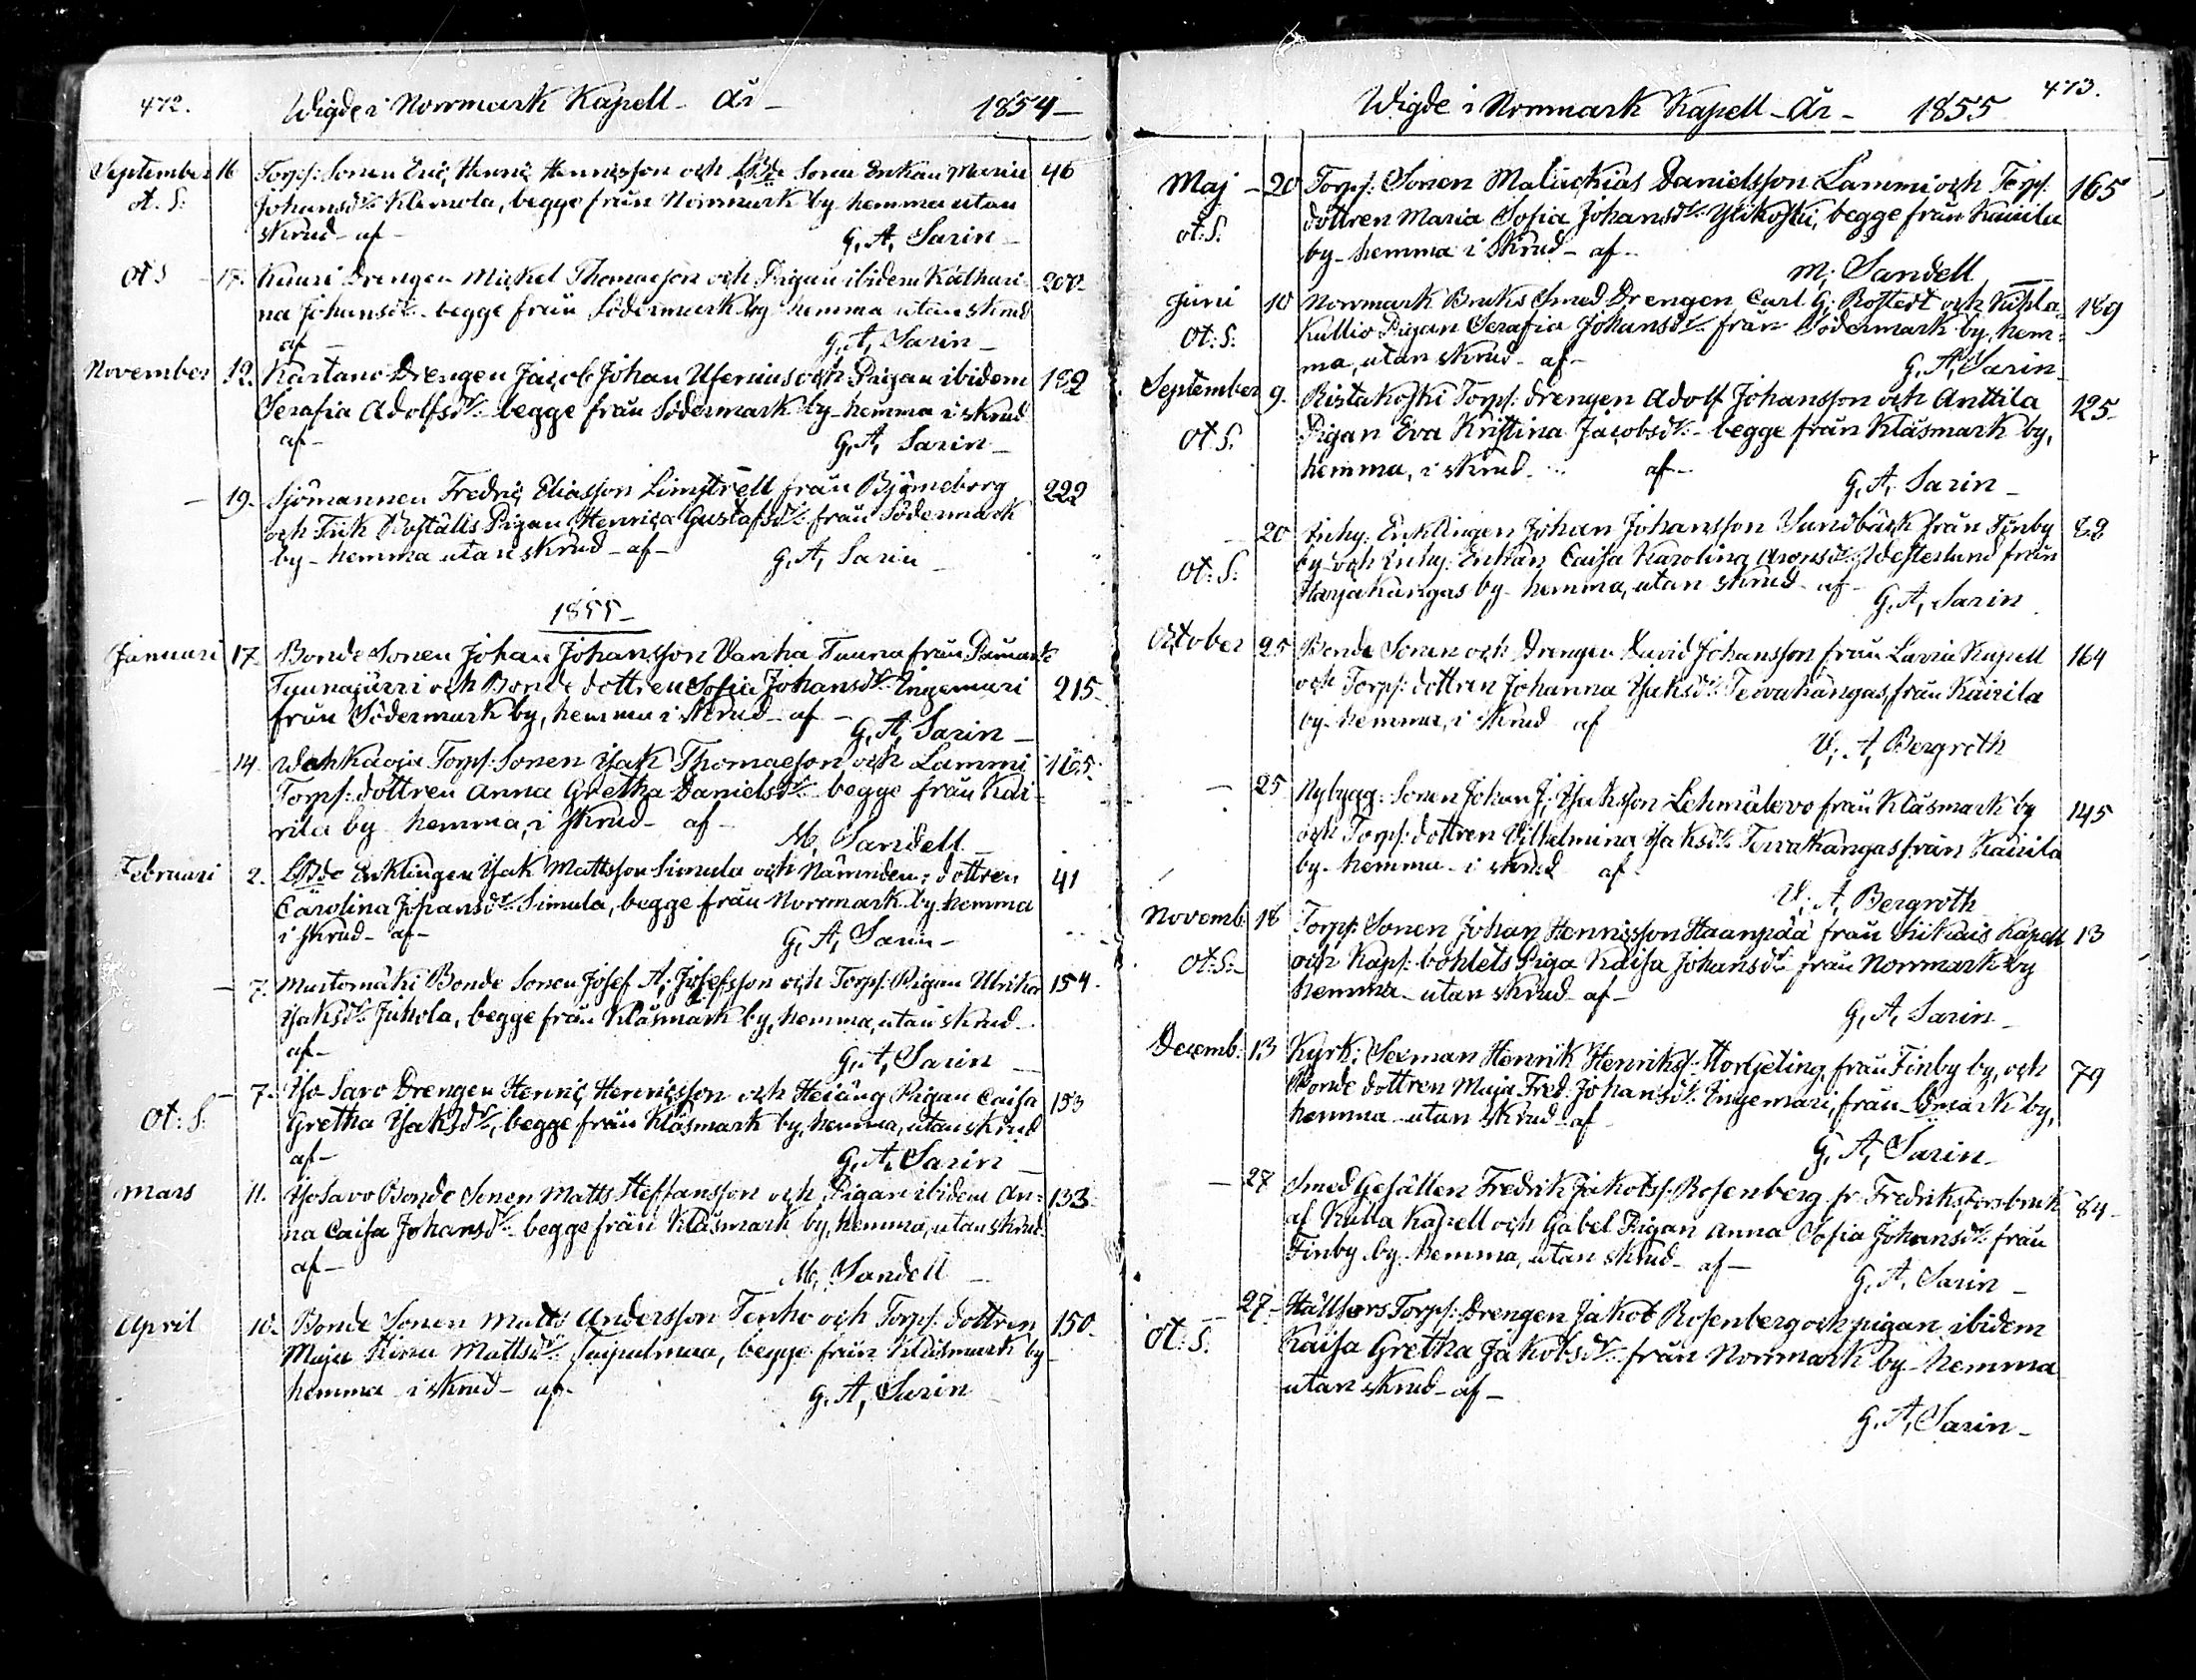 472. Wigde i Norrmark Kapell - År - 1854 -
September 16 Torp: Sonen Eric Henric Henricsson och Enkan Maria 46
ot. S: Johansdr Klemola, begge från Norrmark by hemma utan
skrud - af - G. A. Sarin -
ot S - 17. Knuri Drengen Mickel Thomaeson och Pigan ibidem Kathari- 207-
na Johansdr begge från Södermark by hemma utan skrud
af - G. A. Sarin -
November 12. Kartano Drengen Jacob Johan Ufernius och Pigan ibidem 182
Serafia Adolfsdr begge från Södermark by - hemma i skrud
af - G. A. Sarin -
- 19. Sjömannen Fredric Eliasson Limstrell från Björneborg 222
och Pigan Henrica Gustafsdr från Södermark
by - hemma utan skrud - af - G. A. Sarin -
1855 -
Januari 17. Bonde Sonen Johan Johansson Vanha Tuuna från Påmark
Tuunajärri och Bonde dottren Sofia Johansdr Ingemari 215-
från Södermark by, hemma i skrud - af - G. A. Sarin -
14. Wahkaoja Torp: Sonen Isak Thomaeson och Lammi 165-
Torp: dottren Anna Gretha Danielsdr begge från Kai-
rila by hemma, i skrud - af - M. Sandell -
Februari 2. Enklingen Isak Mattsson Simula och Nämnden: dottren 41
Carolina Johansdr Simula, begge från Norrmark by hemma
i skrud - af - G. A. Sarin -
- 7. Mustomäki Bonde Sonen Josef A. Josefsson och Torp: Pigan Ulrika 154-
Isaksdr Juhola, begge från Kläsmark by, hemma, utan skrud -
af - G. A. Sarin -
- 7. Iso Savo Drengen Henric Henricsson och Heiäng Pigan Caisa 153
ot: S: Gretha Isaksdr, begge från Kläsmark by, hemma, utan skrud
af - G. A. Sarin -
Mars 11. Iso Savo Bonde Sonen Matts Steffansson och Pigan ibidem An- 133-
na Caisa Johansdr begge från Kläsmark by, hemma, utan skrud
af - M. Sandell -
April 10. Bonde Sonen Matts Andersson Tenho och Torp: dottren 150-
Maja Stina Mattsdr Taipalmaa, begge från Kläsmark by
hemma i skrud - af - G. A. Sarin
Wigde i Norrmark Kapell - År - 1855 473.
Maj - 20 Torp: Sonen Malackias Danielsson Lammi och Torp: 165
ot: S: dottren Maria Sofia Johansdr Ylikoski, begge från Kairila
by - hemma i skrud - af - M. Sandell -
Juni 10 Norrmark Bruks Smed Drengen Carl G. Rostedt och 189
ot: S: Kallio Pigan Serafia Johansdr från Södermark by, hem-
ma, utan skrud - af - G. A. Sarin -
September 9. Ristakoski Torp: drengen Adolf Johansson och Anttila 125-
ot: S: Pigan Eva Kristina Jacobsdr - begge från Kläsmark by,
hemma, i skrud - af - G. A. Sarin -
- 20 Inhy: Enklingen Johan Johansson Sundbäck från Finby 82
ot: S: by och Inhy: Enkan Caisa Karolina Aronsdr Westerlund från
Harjakangas by - hemma, utan skrud - af - G. A. Sarin
October 25 Bonde Sonen och Drengen David Johansson från Lavia Kapell 164
och Torp: dottren Johanna Isaksdr Tervakangas, från Kairila
by - hemma, i skrud af
V. A. Bergroth
- 25 Nybygg: Sonen Johan J. Isaksson Lehmälevo från Kläsmark by 145
och Torp: dottren Vilhelmina Isaksdr Tervakangas från Kairila
by - hemma - i skrud af
V. A. Bergroth
Novemb. 18 Torp: Sonen Johan Henricsson Haanpää från Siikais Kapell 13
ot: S: - och Kapl: bohlets Piga Kaisa Johansdr från Norrmark by
hemma - utan skrud - af - G. A. Sarin -
Decemb: 13 Kyrk: Sexman Henrik Henrikss: Hortjeling, från Finby by, och 79
Bonde dottren Maja Fred. Johansdr Ingemari, från Smark by,
hemma - utan skrud - af
G. A. Sarin -
- 27 Smed Gesällen Fredrik Jakobss: Rosenberg fr. Fredriksforsbruk 84-
af Kulla Kapell och Gabel Pigan Anna Sofia Johansdr från
Finby by - hemma, utan skrud - af - G. A. Sarin -
- 27 - Hällfors Torp: Drengen Jakob Rosenberg och pigan ibidem
ot: S: Kaisa Gretha Jakobsdr från Norrmark by - hemma
utan skrud - af -
G. A. Sarin -